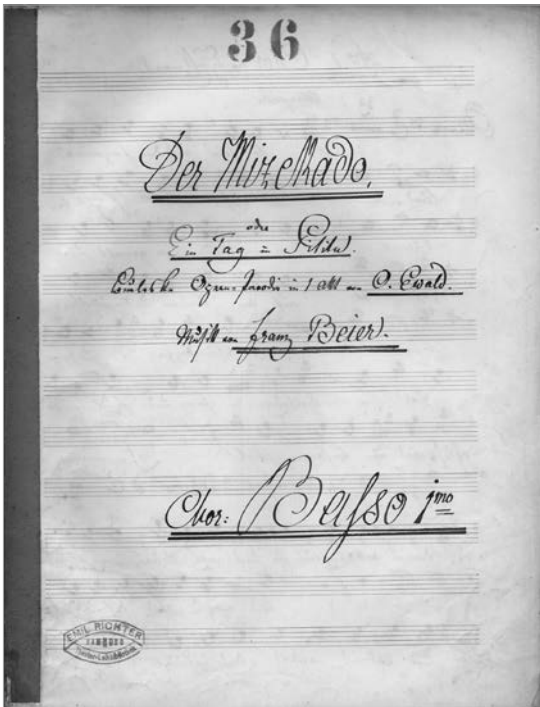 36
Der Mizekado.
oder
Ein Tag in Pititu.
Burleske Opern-Parodie in 1 Akt von O. Ewald.
Musik von Franz Beier.
Chor: Basso 1mo
EMIL RICHTER
HAMBURG